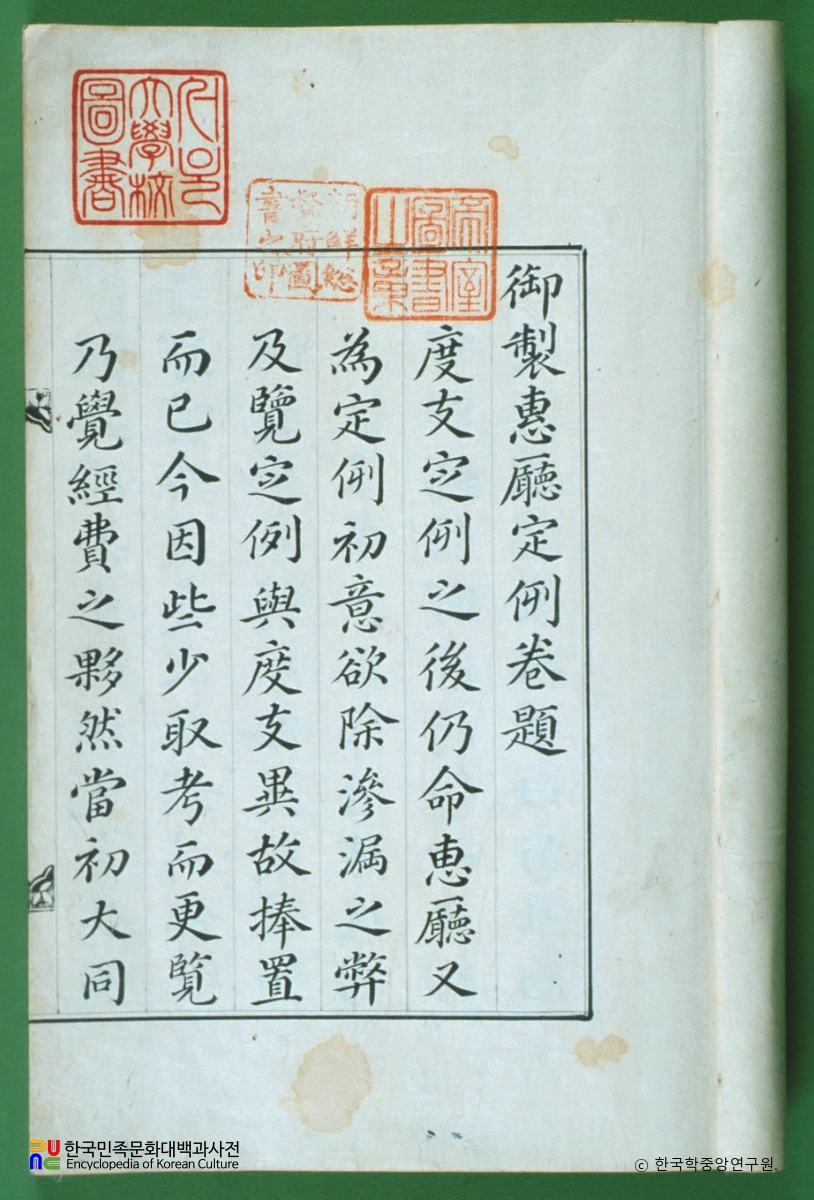 御製惠廳定例卷題
度支定例之後仍命惠廳又
為定例初意欲除滲漏之弊
及覽定例與度支異故捧置
而已今因些少取考而更覽
乃覺經費之夥然當初大同
帝室圖書之章
朝鮮總督府圖書之印
서울大學校圖書
한국민족문화대백과사전
Encyclopedia of Korean Culture
© 한국학중앙연구원.